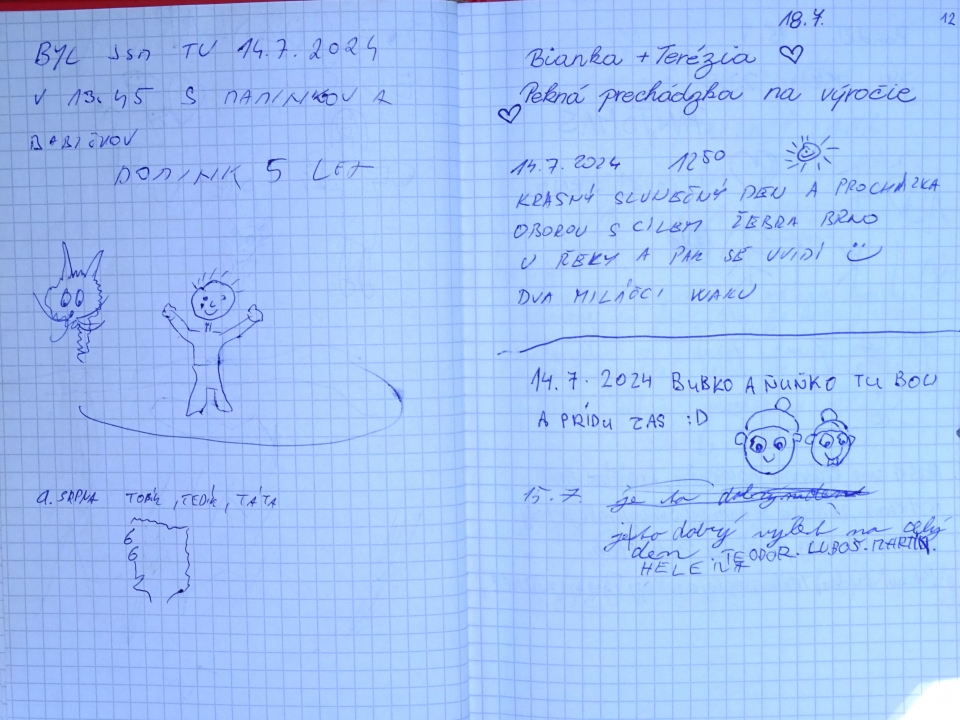 BYL JSM TU 14.7.2024
V 13.45 S MAMINKOV A
BABIČKOV
DOMINIK 5 LET
a. SRPNA TOBÍK, TEDÍK, TÁTA
6
6
18.7.
12
Bianka + Terézia
Pekná prechádzka na výročie
14.7.2024 12 50
KRÁSNÝ SLUNEČNÝ DEN A PROCHÁZKA
OBOROU S CÍLEM ŽEBRA BRNO
U ŘEKY A PAK SE UVIDÍ
DVA MILÁČCI
14.7.2024 BUBKO A ŇUŇKO TU BOLI
A PRÍDU ZAS :D
15.7 je to
je to dobrý výlet na celý
den. TEODOR. LUBOŠ. MARTIN.
HELENA